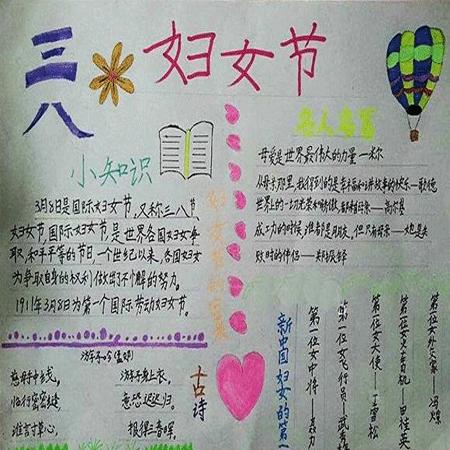 三八
妇女节
小知识
3月8日是国际妇女节,又称三八节,
妇女节,国际妇女节,是世界各国妇女争
取,和平平等的节日,一个世纪以来,各国妇女
为争取自身的权利做出了不懈的努力。
1911年3月8日为第一个国际劳动妇女节。
名人名言
母爱是世界最伟大的力量—米尔
世界上的一切光荣和骄傲,都来自母亲—高尔基
成功的时候,谁都是朋友,但只有母亲—她是失
败时的伴侣—郑振铎
古诗
游子吟
慈母手中线,
游子身上衣,
临行密密缝,
意恐迟迟归。
谁言寸草心,
报得三春晖。
新中国妇女的第一
第一位女中将—聂力
第一位女飞行员—武秀梅
第一位女大使—丁雪松
第一位女火车司机—田桂英
第一位女外交家—冯嫽